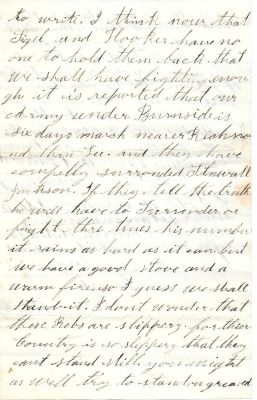 to write. I think now that
Sigel and Hooker have no
one to hold them back that
we shall have fighting enou
gh it is reported that our
army under Burnside is
six days march nearer Richmo
nd than Lee. and they have
compleatly surronded Stonwall
Jackson. If they tell the truth
he will have to Surrender or
fight thre times his number
it rains as hard as it can but
we have a good stove and a
warm fire. so I guess we shall
stand it. I dont wonder that
these Rebs are slippery. for their
Country is so slippery that they
cant stand still. you might
as well try to stand on greased